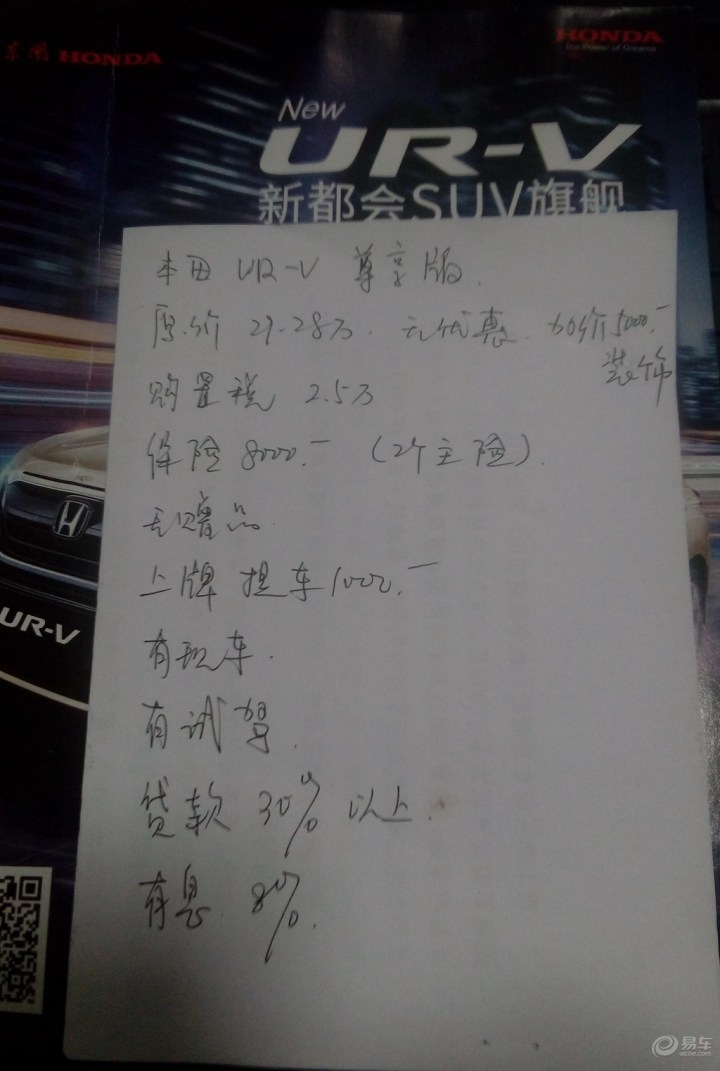 东风 HONDA
HONDA
The Power of Dreams
New
UR-V
新都会SUV旗舰
本田 UR-V 尊享版.
原价 29.28万. 无优惠. 加价5000.-
装饰
购置税 2.5万
保险 8000.- (2个主险).
无赠品.
上牌 提车1000.-
有现车.
有试驾.
贷款 30% 以上.
有息. 8%.
UR-V
易车